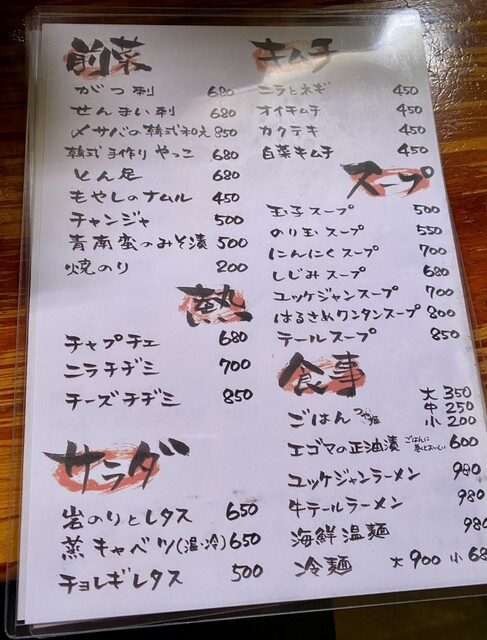 前菜
がつ刺 680
せんまい刺 680
〆サバの韓式和え 850
韓式手作りやっこ 680
とん足 680
もやしのナムル 450
チャンジャ 500
青南蛮のみそ漬 500
焼のり 200
熱
チャプチェ 680
ニラチヂミ 700
チーズチヂミ 850
サラダ
岩のりとレタス 650
蒸キャベツ(温・冷) 650
チョレギレタス 500
キムチ
ニラとネギ 450
オイキムチ 450
カクテキ 450
白菜キムチ 450
スープ
玉子スープ 500
のり玉スープ 550
にんにくスープ 700
しじみスープ 680
ユッケジャンスープ 700
はるさめワンタンスープ 800
テールスープ 850
食事
ごはん つや姫 大 350
中 250
小 200
エゴマの正油漬 ごはんに巻くとおいしい 600
ユッケジャンラーメン 980
牛テールラーメン 980
海鮮温麺 980
冷麺 大 900 小 68